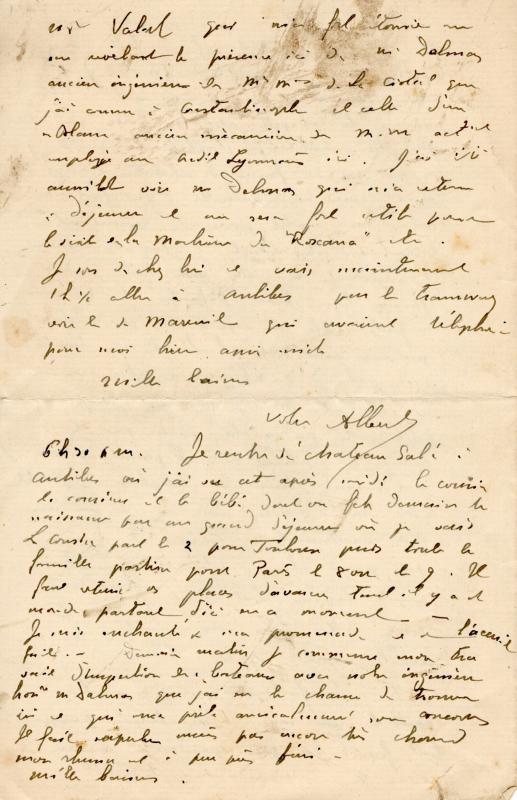 Valat qui m'a fort étonné en
me révélant la présence ici de M. Dalmas
ancien ingénieur des Mies de la Ciotat que
j'ai connu à Constantinople et celle d'un
ancien mécanicien des M.M. actuel
employé au Crédit Lyonnais ici. J'ai été
aussitôt voir M. Dalmas qui m'a retenu
à déjeuner et me sera fort utile pour
la visite de la Machine du "Roxana" etc.
Je sors de chez lui et vais maintenant
1 h ½ aller à Antibes par le tramway
voir les de Mareuil qui avaient téléphoné
pour moi hier après midi
mille baisers
votre Albert
6h30 soir. Je rentre de Chateau Salé à
Antibes où j'ai vu cet après midi le cousin
la cousine et le bébé dont on fête demain la
naissance par un grand déjeuner où je vais
Le cousin part le 2 pour Toulouse puis toute la
famille partira pour Paris le 8 ou le 9. Il
faut retenir ses places d'avance tant il y a de
monde partout d'ici en ce moment
Je suis enchanté de ma promenade et de l'accueil
fait. - Demain matin je commence mon tra
vail d'inspection des bateaux avec notre ingénieur
M. Dalmas que j'ai eu la chance de trouver
ici et qui me prête amicalement son concours
Il fait mais pas encore très chaud
mon rhume est à peu près fini -
mille baisers.